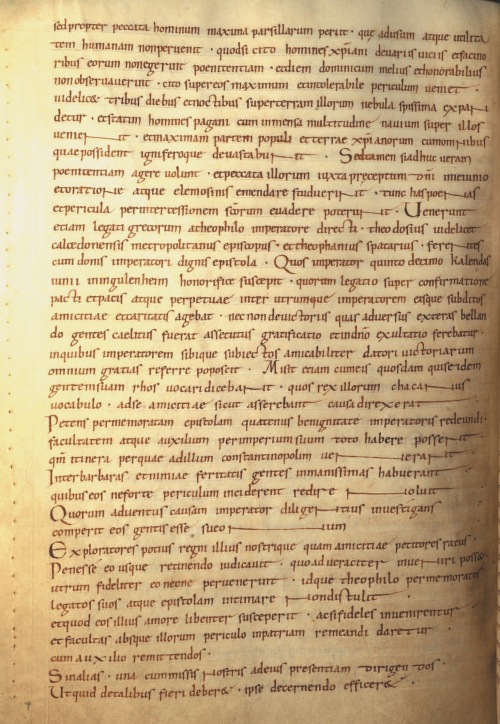 sed propter peccata hominum maxima pars illarum perit · que adusum atque utilita
tem humanam nonperuenit · quodsi cito homines xp̄iani deuariis uiciis etfacino
ribus eorum nonegerint poenitentiam · etdiem dominicum melius ethonorabilius
non obseruauerint · cito supereos maximum etintolerabile periculum ueniet ·
uidelic& · tribus diebus etnoctibus superterram illorum nebula spissima expan
detur · etstatim homines pagani cum inmensa multitudine nauium super illos
uenient · etmaximam partem populi etterrae xp̄ianorum cumomnibus
quae possident igniferoque deuastabunt · Sedtamen siadhuc ueram
poenitentiam agere uolunt · etpeccata illorum iuxta preceptum dn̄i inieiunio
etoratione atque elemosinis emendare studuerint · tunc has poenas
etpericula per intercessionem sc̄orum euadere poterunt · Uenerunt
etiam legati grecorum atheophilo imperatore directi · theodosius uidelicet
calcedonensis metropolitanus episcopus · ettheophanius spatarius · ferentes
cum donis imperatori dignis epistola · Quos imperator quinto decimo kalendas
iunii iningulenheim honorifice suscepit · quorum legatio super confirmatione
pacti etpacis atque perpetuae inter utrumque imperatorem eique subditos
amicitiae etcaritatis agebat · nec non deuictoriis quas aduersus exteras bellan
do gentes caelitus fuerat assecutus gratificatio etindn̄o exultatio ferebatur ·
inquibus imperatorem sibique subiectos amicabiliter datori uictoriarum
omnium gratias referre poposcit · Misit etiam cumeis quosdam quise idem
gentem suam rhos uocari dicebant · quos rex illorum chacanus
uocabulo · adse amicitiae sicut asserebant causa direxerat
Petens permemoratam epistolam quatenus benignitate imperatoris redeundi
facultatem atque auxilium perimperium suum toto habere possent ·
qm̄ itinera perquae adillum constantinopolim uenerant ·
Interbarbaras etnimiae feritatis gentes inmanissimas habuerant
quibus eos neforte periculum inciderent redire noluit
Quorum aduentus causam imperator diligentius inuestigans
comperit eos gentis esse sueonum
Exploratores potius regni illius nostrique quam amicitiae petitores ratus ·
Penes se eo usque retinendo iudicauit · quo adueraciter inueniri posset
utrum fideliter eo necne peruenerint · idque theophilo permemoratos
legatos suos atque epistolam intimare nondistulit
etquod eos illius amore libenter susceperit · acsifideles inuenirentur
etfacultas absque illorum periculo inpatriam remeandi daretur
cum auxilio remittendos ·
Sinalias · una cummissis nostris adeius presentiam dirigendos ·
Utquid detalibus fieri deber& · ipse decernendo efficer& ·